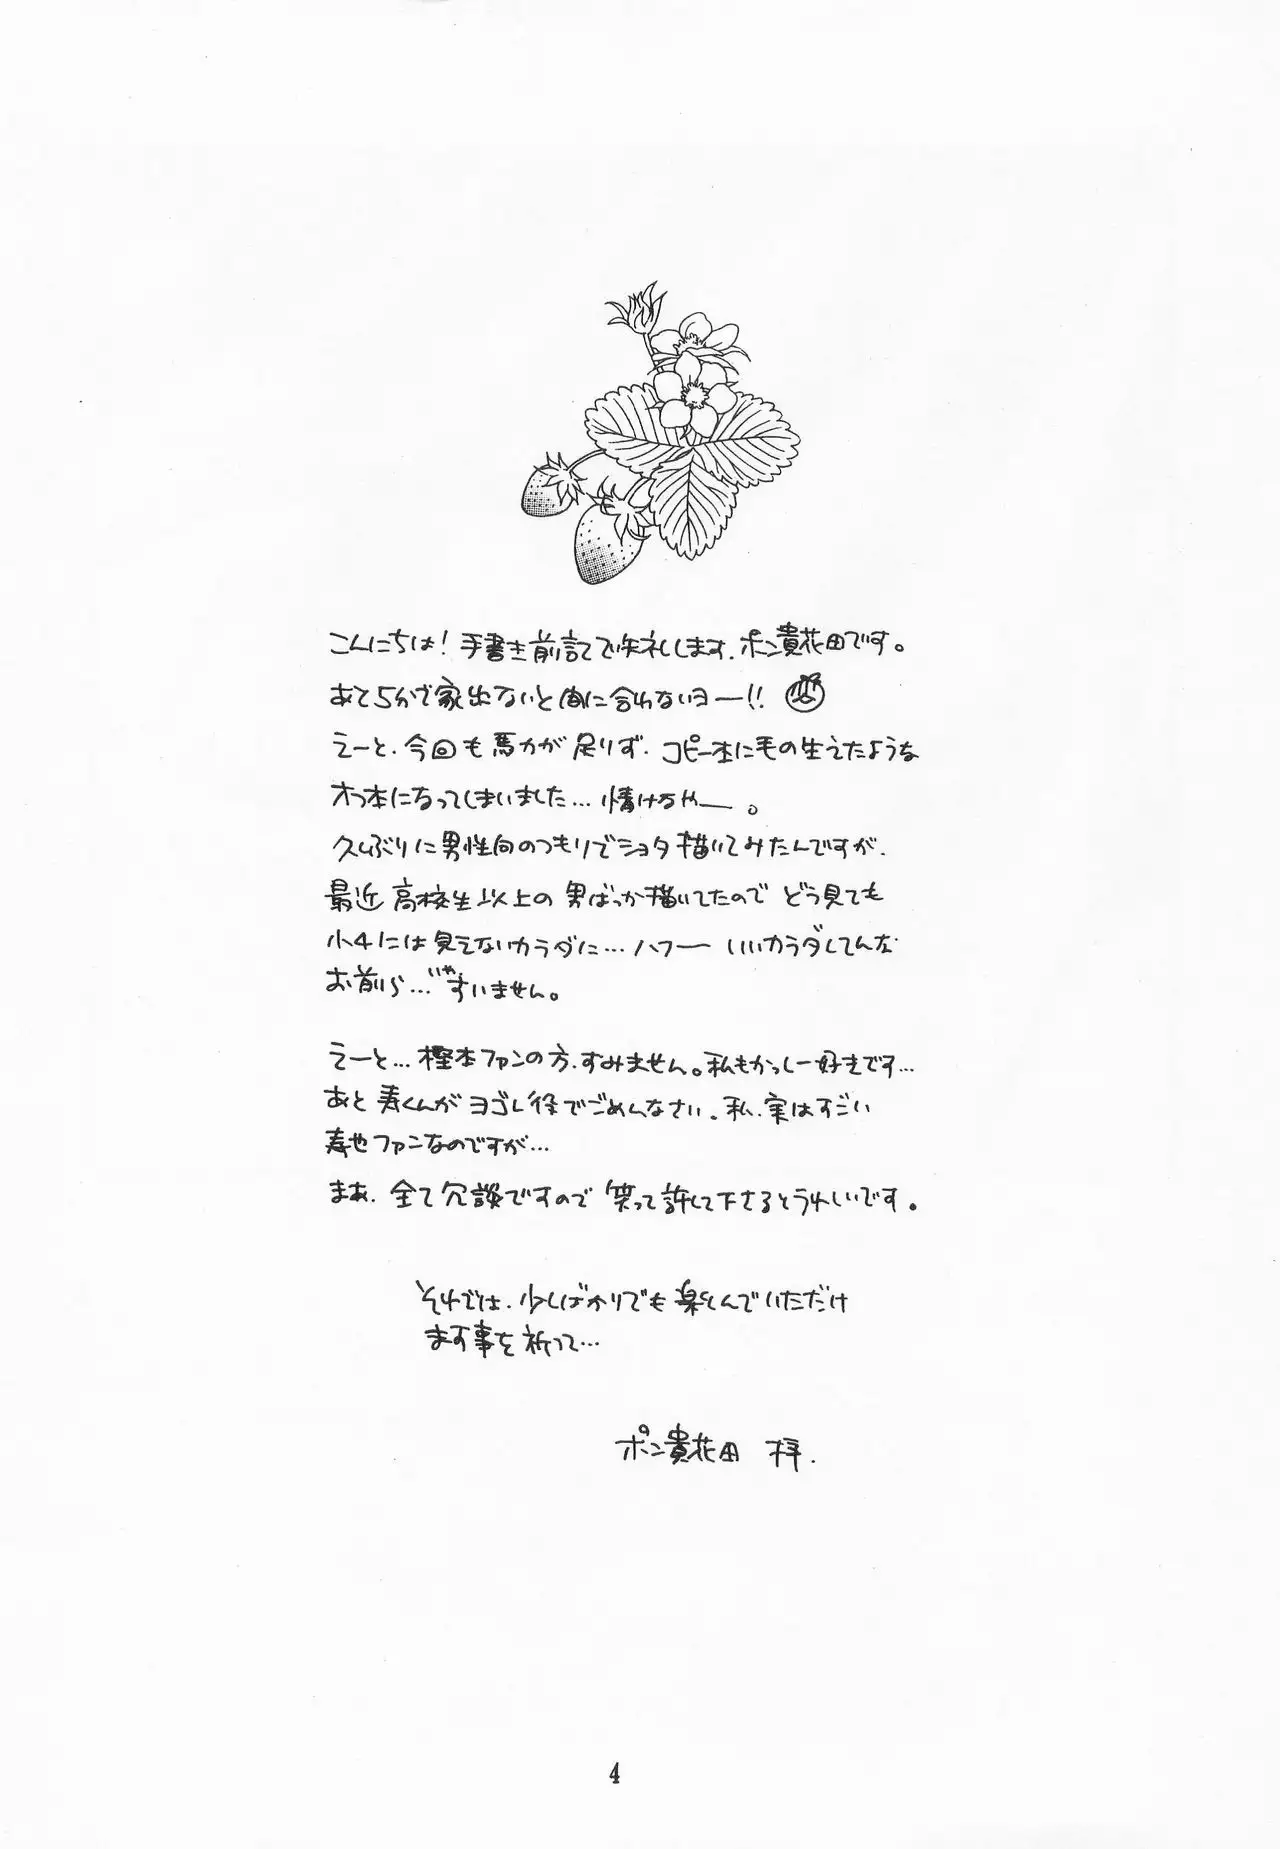 こんにちは！手書き前記で失礼します、ポン貴花田です。
あと5分で家出ないと間に合わないヨー!!
えーと、今回も馬力が足りず、コピー本に毛の生えたような
オフ本になってしまいました…情けなやー。
久しぶりに男性向のつもりでショタ描いてみたんですが、
最近高校生以上の男ばっか描いてたので どう見ても
小4には見えないカラダに…ハフー いいカラダしてんな
お前ら…いやすいません。
えーと…樫本ファンの方、すみません。私もかっしー好きです…
あと寿くんがヨゴレ役でごめんなさい。私、実はすごい
寿也ファンなのですが…
まあ、全て冗談ですので 笑って許して下さるとうれしいです。
それでは、少しばかりでも楽しんでいただけ
ます事を祈って…
ポン貴花田 梓.
4